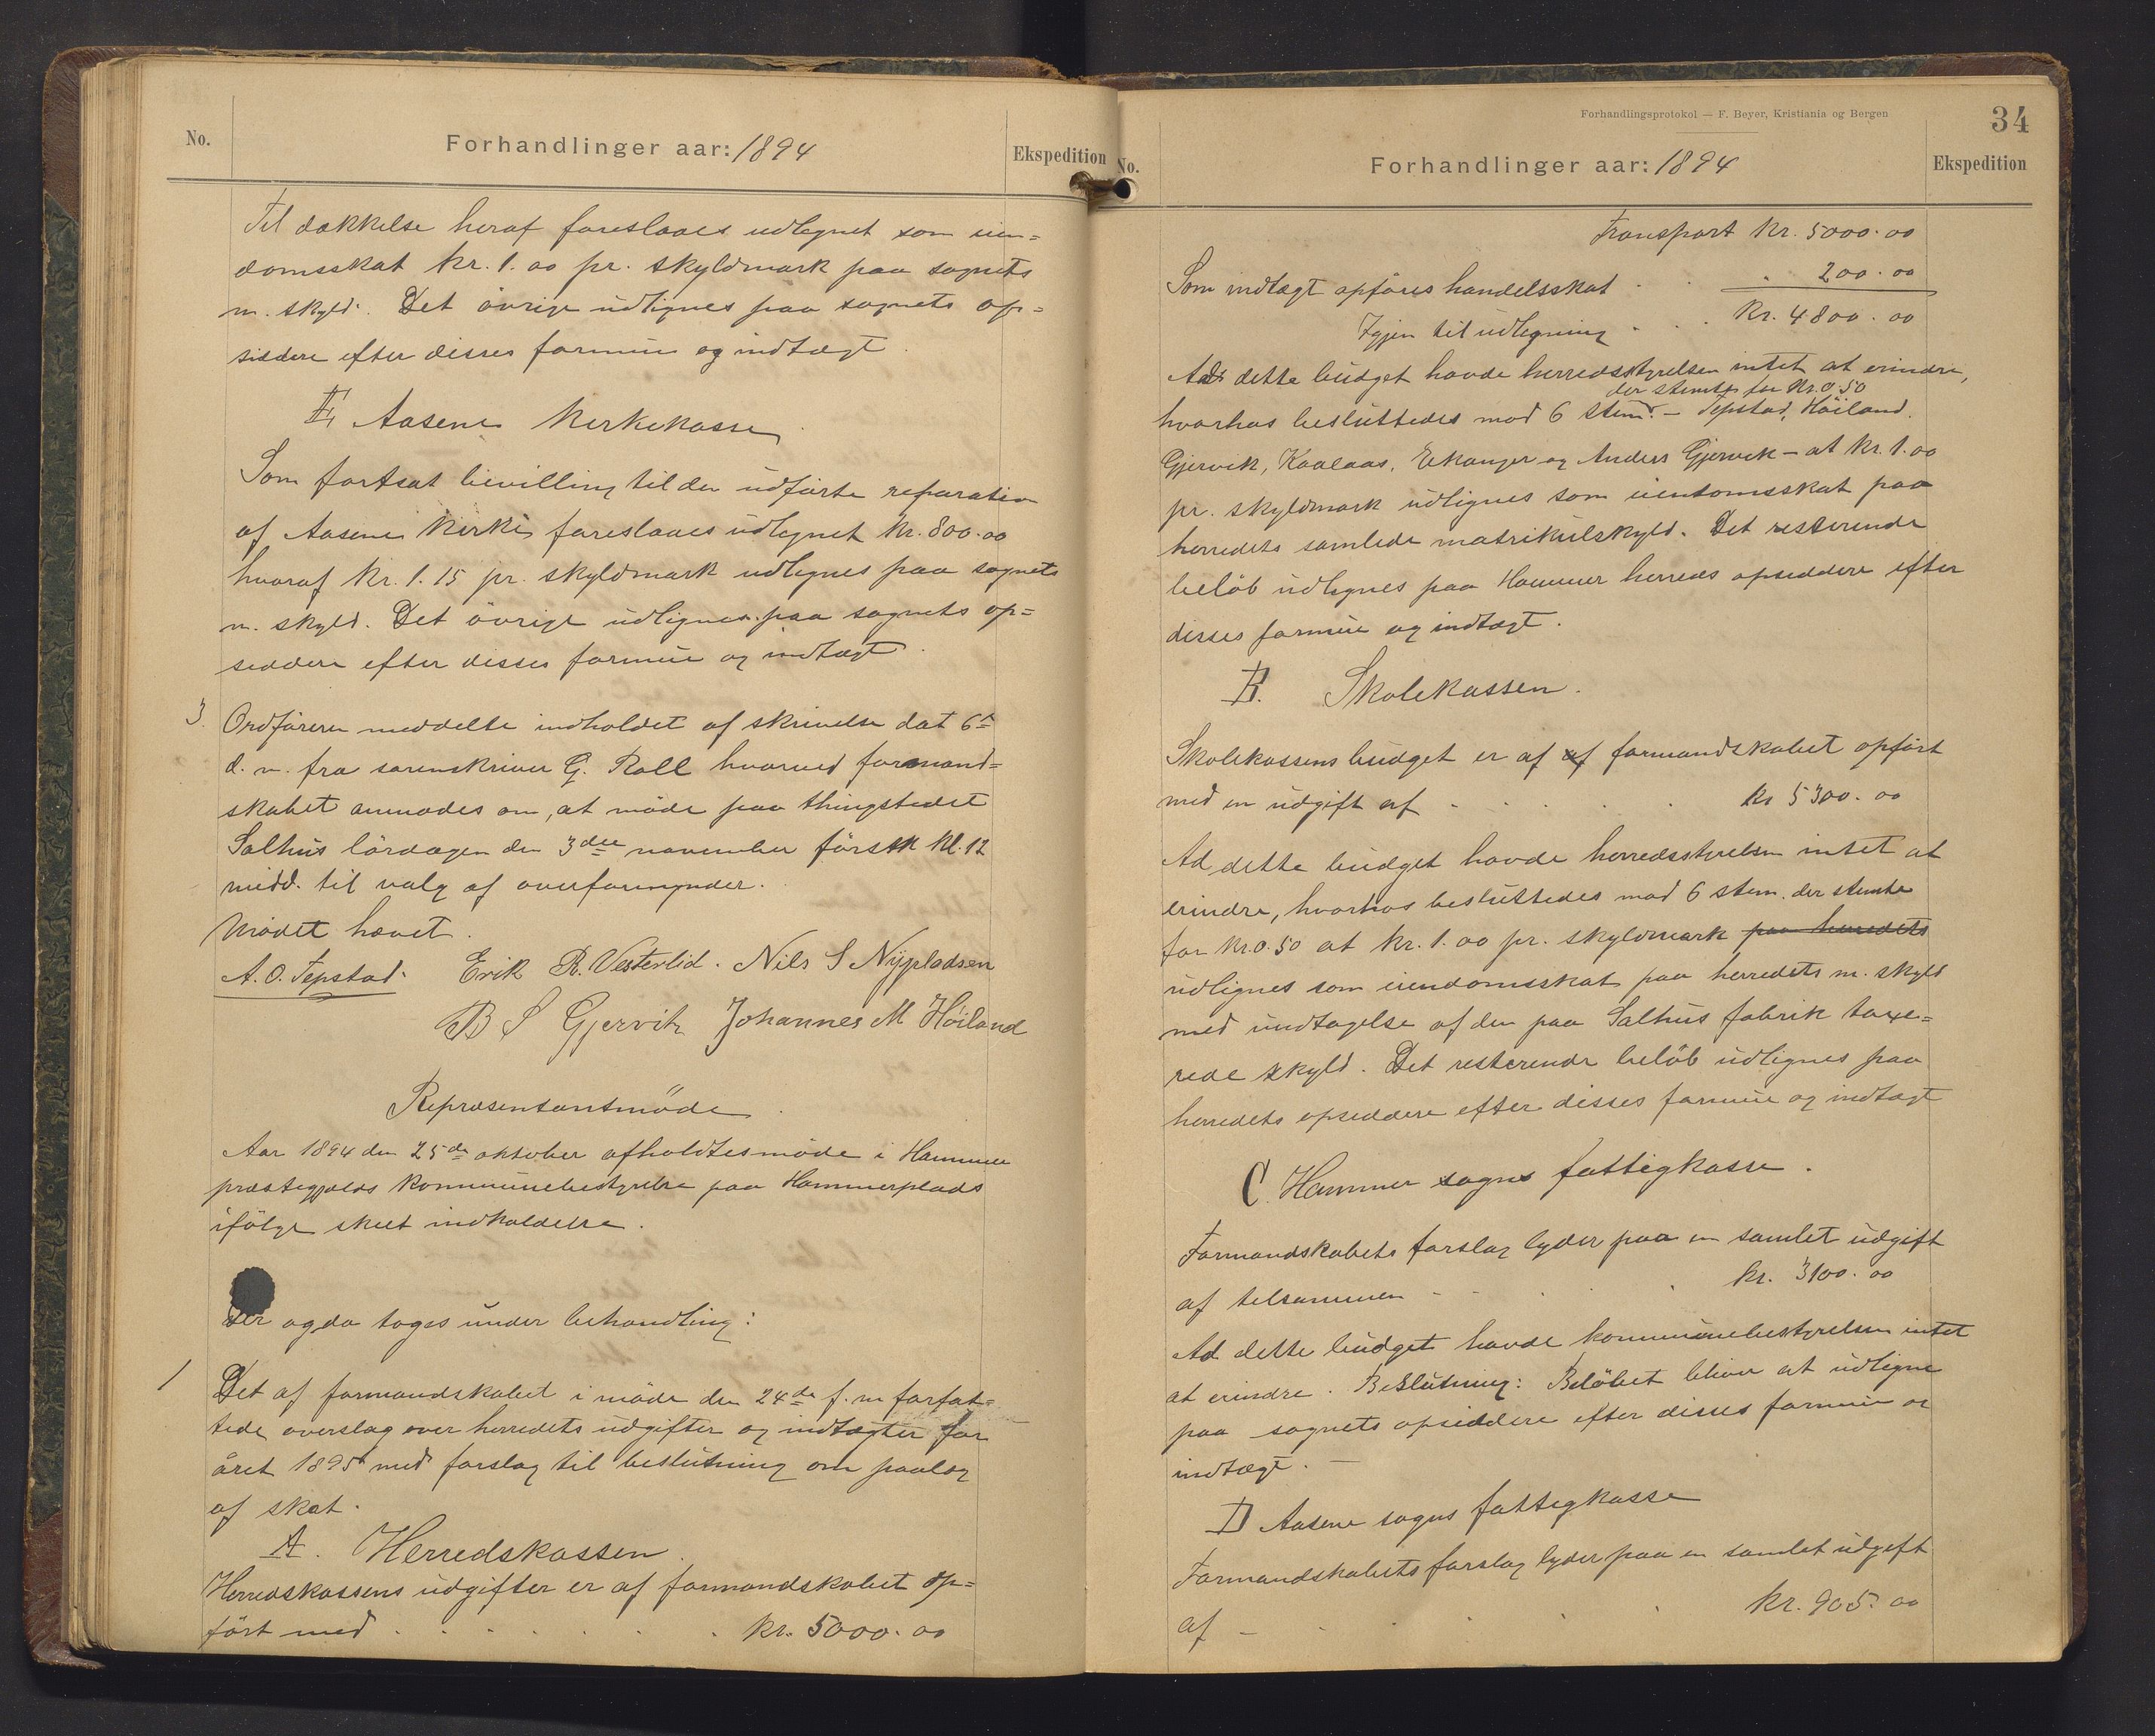 No.
Forhandlinger aar: 1894
Ekspedition
Til dækkelse heraf foreslaaes udlignet som eien=
domsskat kr. 1.00 pr. skyldmark paa sognets
m. skyld. Det övrige udlignes paa sognets op=
siddere efter disses formue og indtægt.
E Aasene kirkekasse
Som fortsat bevilling til den udførte reparation
af Aasene kirke foreslaaes udlignet kr. 800.00
hvoraf kr. 1.15 pr. skyldmark udlignes paa sognets
m. skyld. Det övrige udlignes paa sognets op=
siddere efter disses formue og indtægt.
3. Ordföreren meddelte indholdet af skrivelse dat 6te
d. m. fra sorenskriver G. Roll hvorved formand=
skabet anmodes om, at möde paa thingstedet
Salhus lördagen den 3die november förstk kl. 12
midd. til valg af overformynder.
Mödet hævet.
A. O. Tepstad. Erik R. Vesterlid. Nils S Nypladsen
B S Gjervik Johannes M Höiland
Repræsentantmöde.
Aar 1894 den 25de oktober afholdtes möde i Hammer
præstegjælds kommunebestyrelse paa Hammerplads
ifölge skeet indkaldelse.
Der ogda toges under behandling:
1 Det af formandskabet i möde den 24de f. m forfat=
tede overslag over herredets udgifter og indtægter for
året 1895 med forslag til beslutning om paalæg
af skat.
A. Herredskassen.
Herredskassens udgifter er af formandskabet op=
fört med . . . . . . . kr. 5000.00
Forhandlingsprotokol — F. Beyer, Kristiania og Bergen
34
No.
Forhandlinger aar: 1894
Ekspedition
Transport kr. 5000.00
Som indtægt opföres handelsskat . . . 200.00
Igjen til udligning . . . kr. 4800.00
Ad dette budget havde herredsstyrelsen intet at erindre,
der stemte for kr. 0.50
hvorhos besluttedes mod 6 stem. – Tepstad, Höiland.
Gjervik, Kaalaas, Eikanger og Anders Gjervik – at kr. 1.00
pr. skyldmark udlignes som eiendomsskat paa
herredets samlede matrikulskyld. Det resterende
belöb udlignes paa Hammer herreds opsiddere efter
disses formue og indtægt.
B. Skolekassen.
Skolekassens budget er af af formandskabet opfört
med en udgift af - . . . . kr 5300.00
Ad dette budget havde herredsstyrelsen intet at
erindre, hvorhos besluttedes mod 6 stem. der stemte
for kr. 0.50 at kr. 1.00 pr. skyldmark paa herredets
udlignes som eiendomsskat paa herredets m. skyld
med undtagelse af den paa Salhus fabrik taxe=
rede skyld. Det resterende belöb udlignes paa
herredets opsiddere efter disses formue og indtægt
C. Hammer sogns fattigkasse.
Formandskabets forslag lyder paa en samlet udgift
af tilsammen - - . . . kr. 3100.00
Ad dette budget havde kommunebestyrelsen intet
at erindre. Beslutning: Belöbet bliver at udligne
paa sognets opsiddere efter disses formue og
indtægt. –
D Aasene sogns fattigkasse
Formandskabets forslag lyder paa en samlet udgift
af - . . . . kr. 905.00